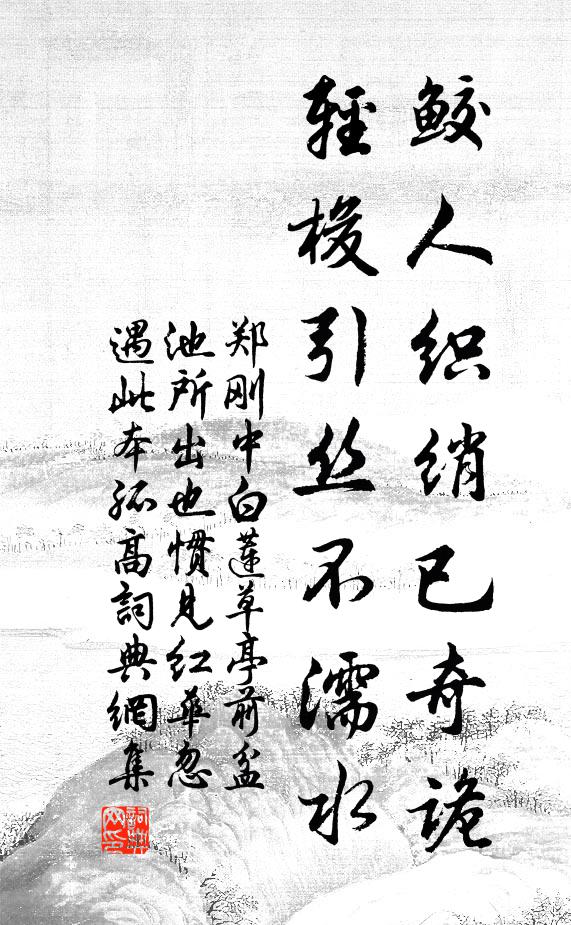 鲛人织绡已奇诡
轻梭引丝不濡水
郑刚中白莲草亭前盆
池所出也惯见红华忽
遇此本孤高词典網集